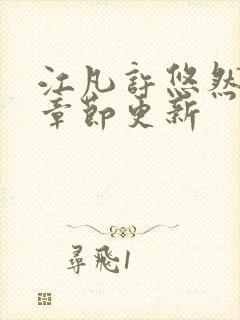 江凡許悠然
章節更新
尋飛1